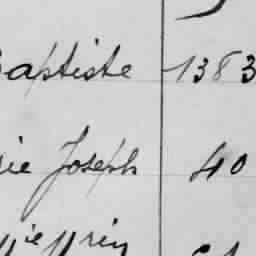 Baptiste 1383
rie Joseph 40